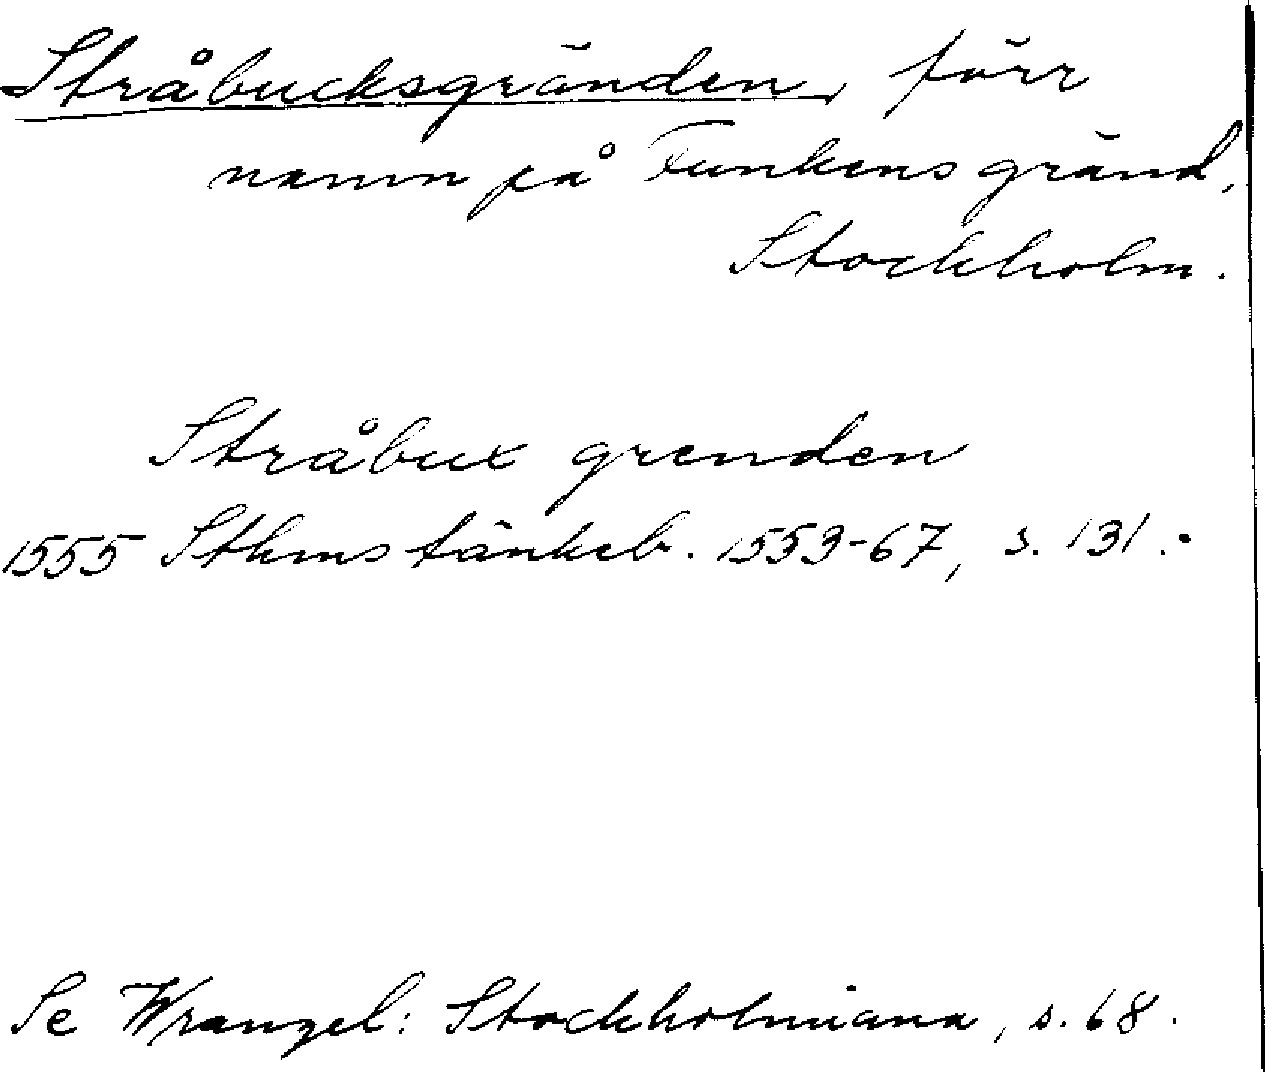 Stråbucksgränden, förr
namn på Funkens gränd,
Stockholm.
Stråbux grenden
1555 Sthms tänkeb. 1553-67, s. 131.
Se Wrangel: Stockholmiana, s. 68.